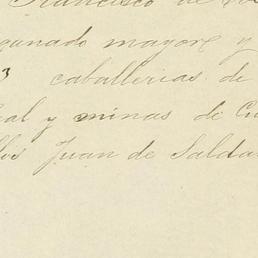 Francisco de
ganado mayor y
3 caballerias de
y minas de
Juan de Salda